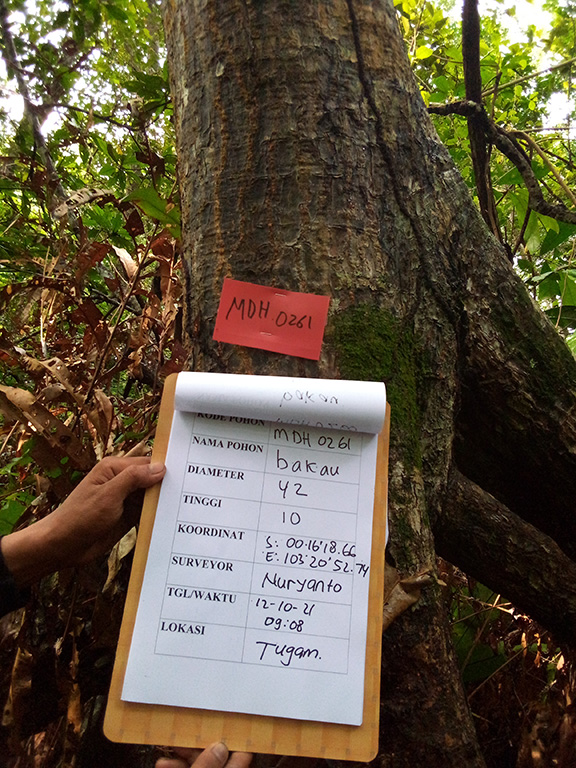 MDH 0261
KODE POHON MDH 0261
NAMA POHON bakau
DIAMETER 42
TINGGI 10
KOORDINAT S: 00°16'18.66
E: 103°20'52.74
SURVEYOR Nuryanto
TGL/WAKTU 12-10-21
09:08
LOKASI Tugam.